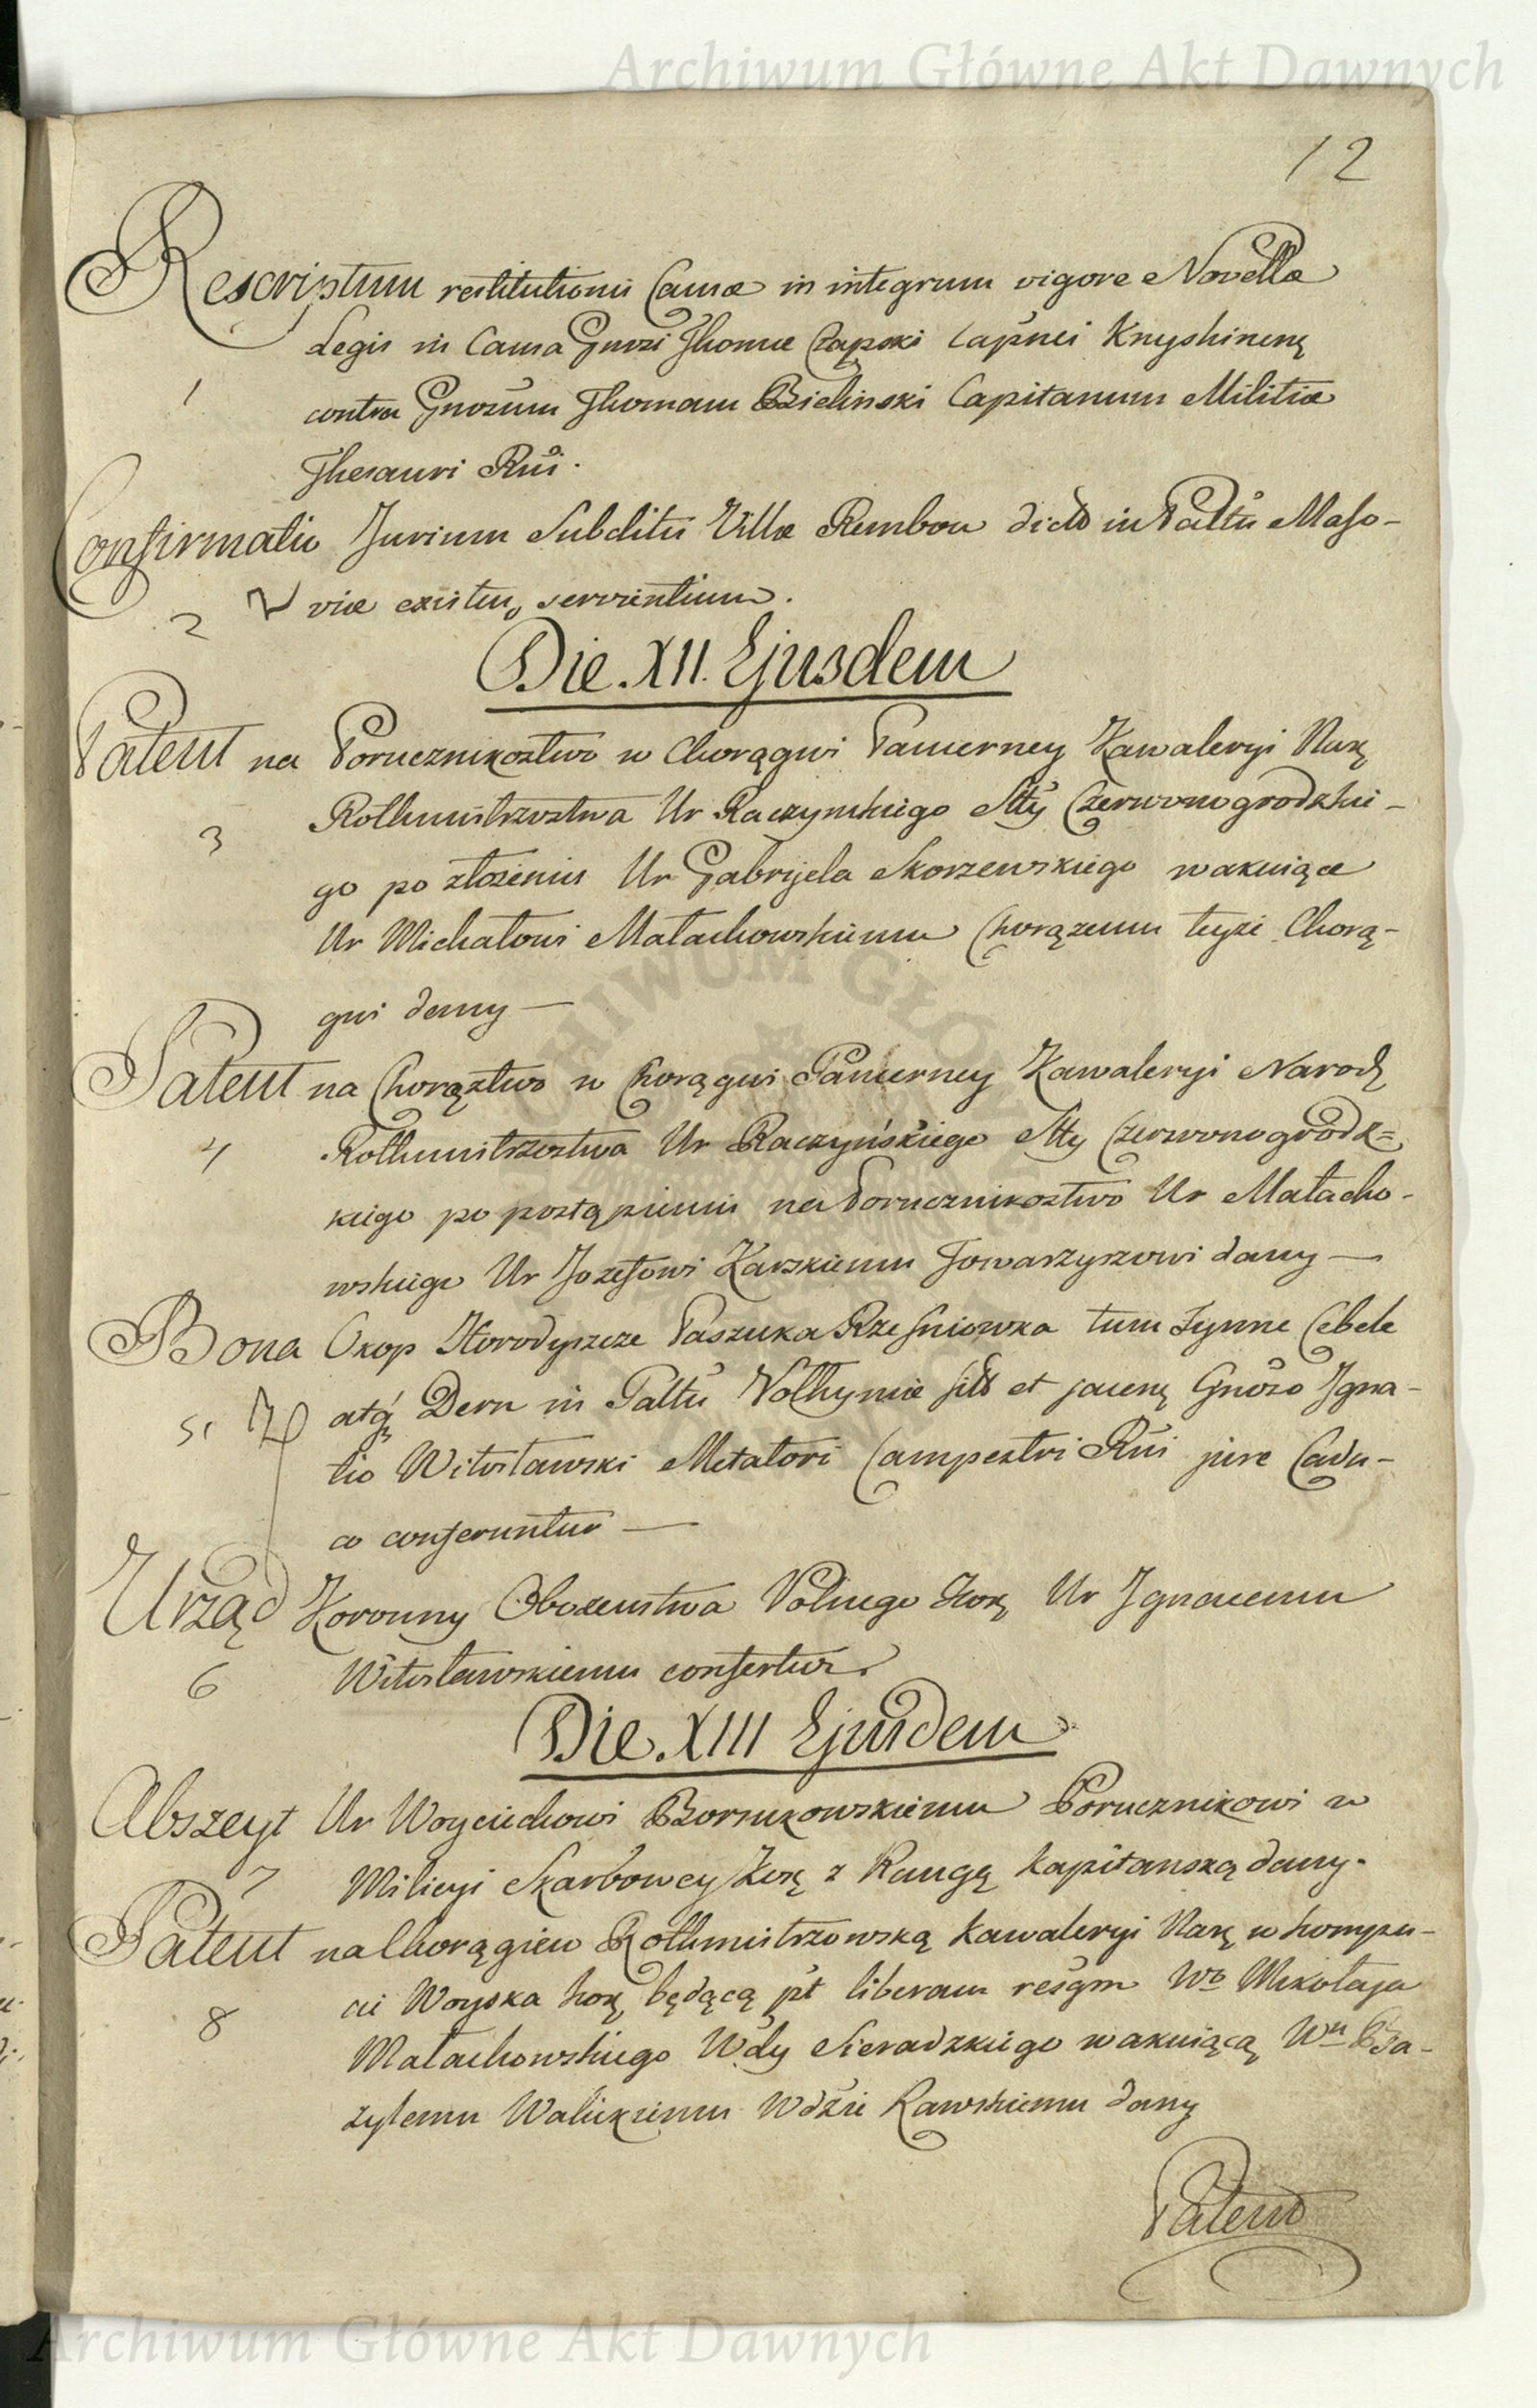 Archiwum Główne Akt Dawnych
12
Rescriptum restitutionis Causæ in integrum vigore Novellæ
Legis in Causa Gnrsi Thomæ Czapski Capnei Knyshinen̨
1
contra Gnosum Thomam Bielinski Capitanum Militiæ
Thesauri Rni.
Confirmatio Jurium Subditis Villæ Rembow dictæ in Paltu Maso-
2 viæ existen, servientium.
Die. XII. Ejusdem
Patent na Porucznikostwo w Chorągwi Pancerney Kawaleryi Narę
3 Rothmistrzostwa Ur Raczynskiego Stty Czerwonogrodzkie-
go po złożeniu Ur Gabryela Skorzewskiego wakuiące
Ur Michałowi Małachowskiemu Chorązemu teyże Chorą-
gwi dany —
Patent na Chorąztwo w Chorągwi Pancerney Kawaleryi Narodę
4 Rothmistrzostwa Ur Raczyńskiego Stty Czerwonogrodz=
kiego po postąpieniu na Porucznikostwo Ur Małacho-
wskiego Ur Jozefowi Karskiemu Towarzyszowi dany —
Bona Okop Horodyszcze Paszuka Rzesniowka tum Synne Cebele
5 atq Dern in Paltu Volhyniæ sita et jacenę Gnoso Igna-
tio Witosławski Metatori Campestri Rni jure Cadu-
co conferuntur —
Urząd Koronny Obozenstwa Polnego Korę Ur Ignacemu
6 Witosławskiemu confertur.
Die. XIII Ejusdem
Abszeyt Ur Woyciechowi Borsukowskiemu Porucznikowi w
7 Milicyi Skarbowey Korę z Rangą Kapitanską dany.
Patent na Chorągiew Rothmistrzowską Kawaleryi Narę w kompu-
8 cie Woyska korę będącą pt liberam resgm Wo Mikołaja
Małachowskiego Wdy Sieradzkiego wakuiącą Wu Ba-
zylemu Walickiemu Wdzie Rawskiemu dany
Patent
Archiwum Główne Akt Dawnych